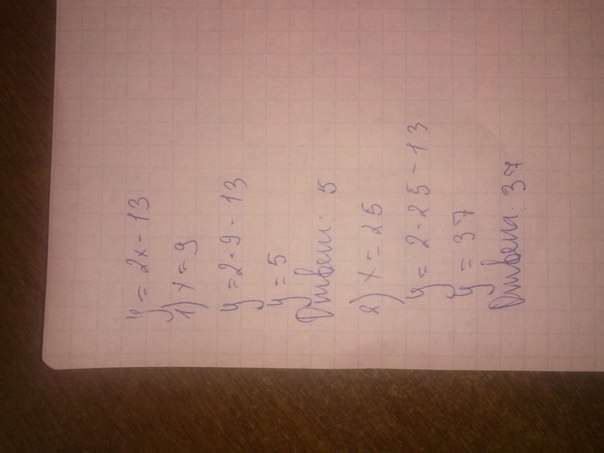 y = 2x - 13
1) x = 9
y = 2 · 9 - 13
y = 5
Ответ: 5
2) x = 25
y = 2 · 25 - 13
y = 37
Ответ: 37